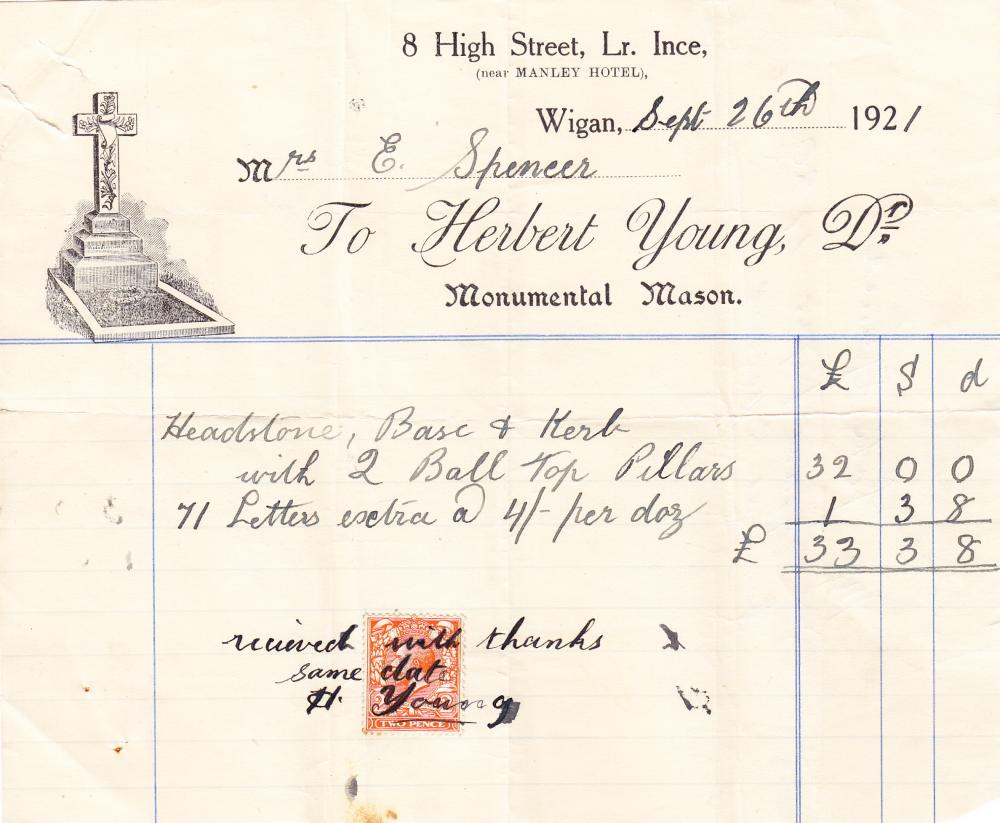 8 High Street, Lr. Ince,
(near MANLEY HOTEL),
Wigan, Sept 26th 1921
Mrs E. Spencer
To Herbert Young, Dr.
Monumental Mason.
£ S d
Headstone, Base & Kerb
with 2 Ball Top Pillars 32 0 0
71 Letters esctra @ 4/- per doz 1 3 8
£ 33 3 8
recieved with thanks
same date
H. Young
TWO PENCE